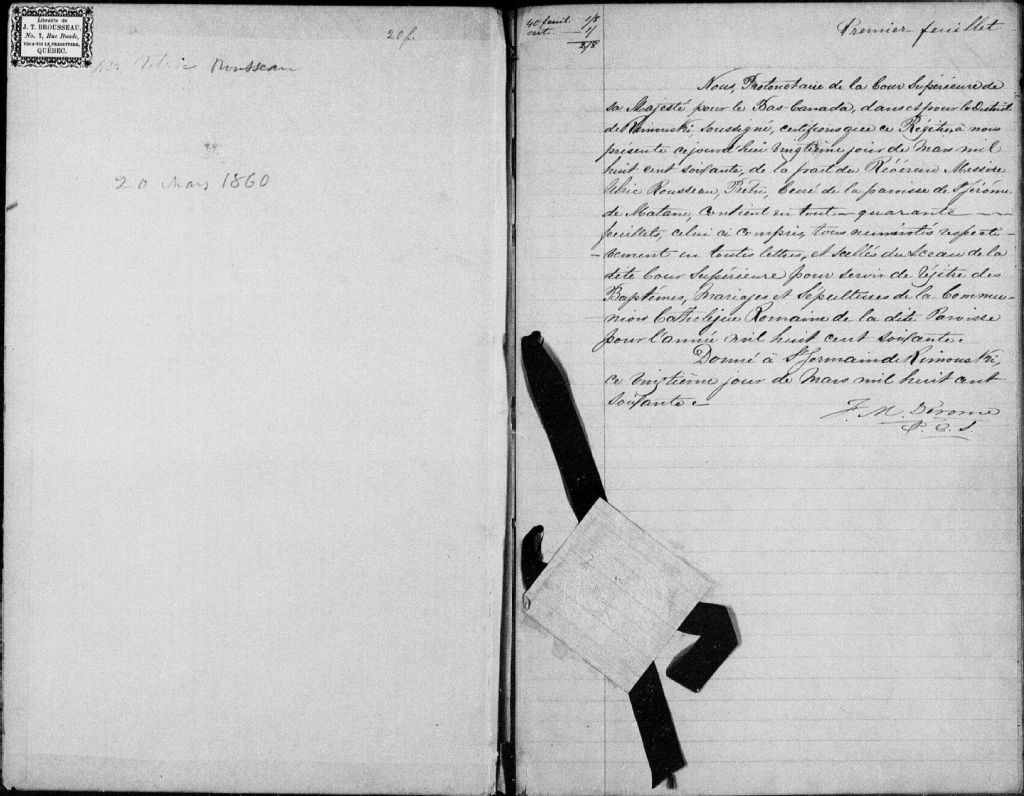 Librairie de
J. T. BROUSSEAU,
No. 7, Rue Buade,
VIS-A-VIS LE PRESBYTERE,
QUÉBEC.
20f.
Ulric Rousseau
20 Mars 1860
40 feuil 1/8
cert. 1/
2/8
Premier feuillet
Nous, Protonotaire de la Cour Supérieure de
sa Majesté pour le Bas-Canada, dans et pour le District
de Rimouski, soussigné, certifions que ce Régitre à nous
présenté cejourd'hui vingtième jour de Mars mil
huit cent soixante, de la part du Révérend Messire
Ulric Rousseau, Prêtre, Curé de la paroisse de St Jérôme
de Matane, contient en tout — quarante —
feuillets, celui ci compris, tous numérotés respecti-
-vement en toutes lettres, et scellés du Sceau de la
dite Cour Supérieure pour servir de régitre des
Baptêmes, Mariages et Sépultures de la Commu-
-nion Catholique Romaine de la dite Paroisse
pour l'année mil huit cent soixante.
Donné à St Germain de Rimouski,
ce vingtième jour de Mars mil huit cent
soixante.
J. M. Derome
P. C. S.